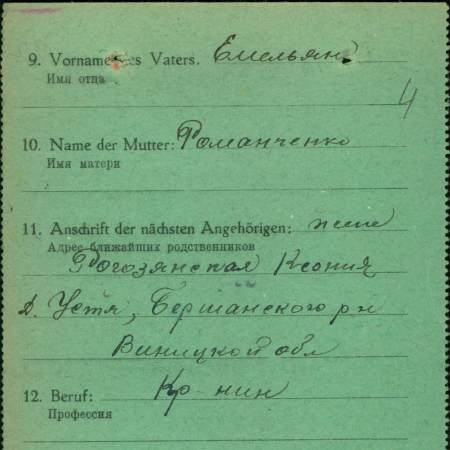 9. Vorname des Vaters. Емельян
Имя отца
4
10. Name der Mutter: Романченко
Имя матери
11. Anschrift der nächsten Angehörigen: жене
Адрес ближайших родственников
Рогозянская Ксения
д. Устя, Бершанского р-н
Виницкой обл
12. Beruf: Кр-нин
Профессия